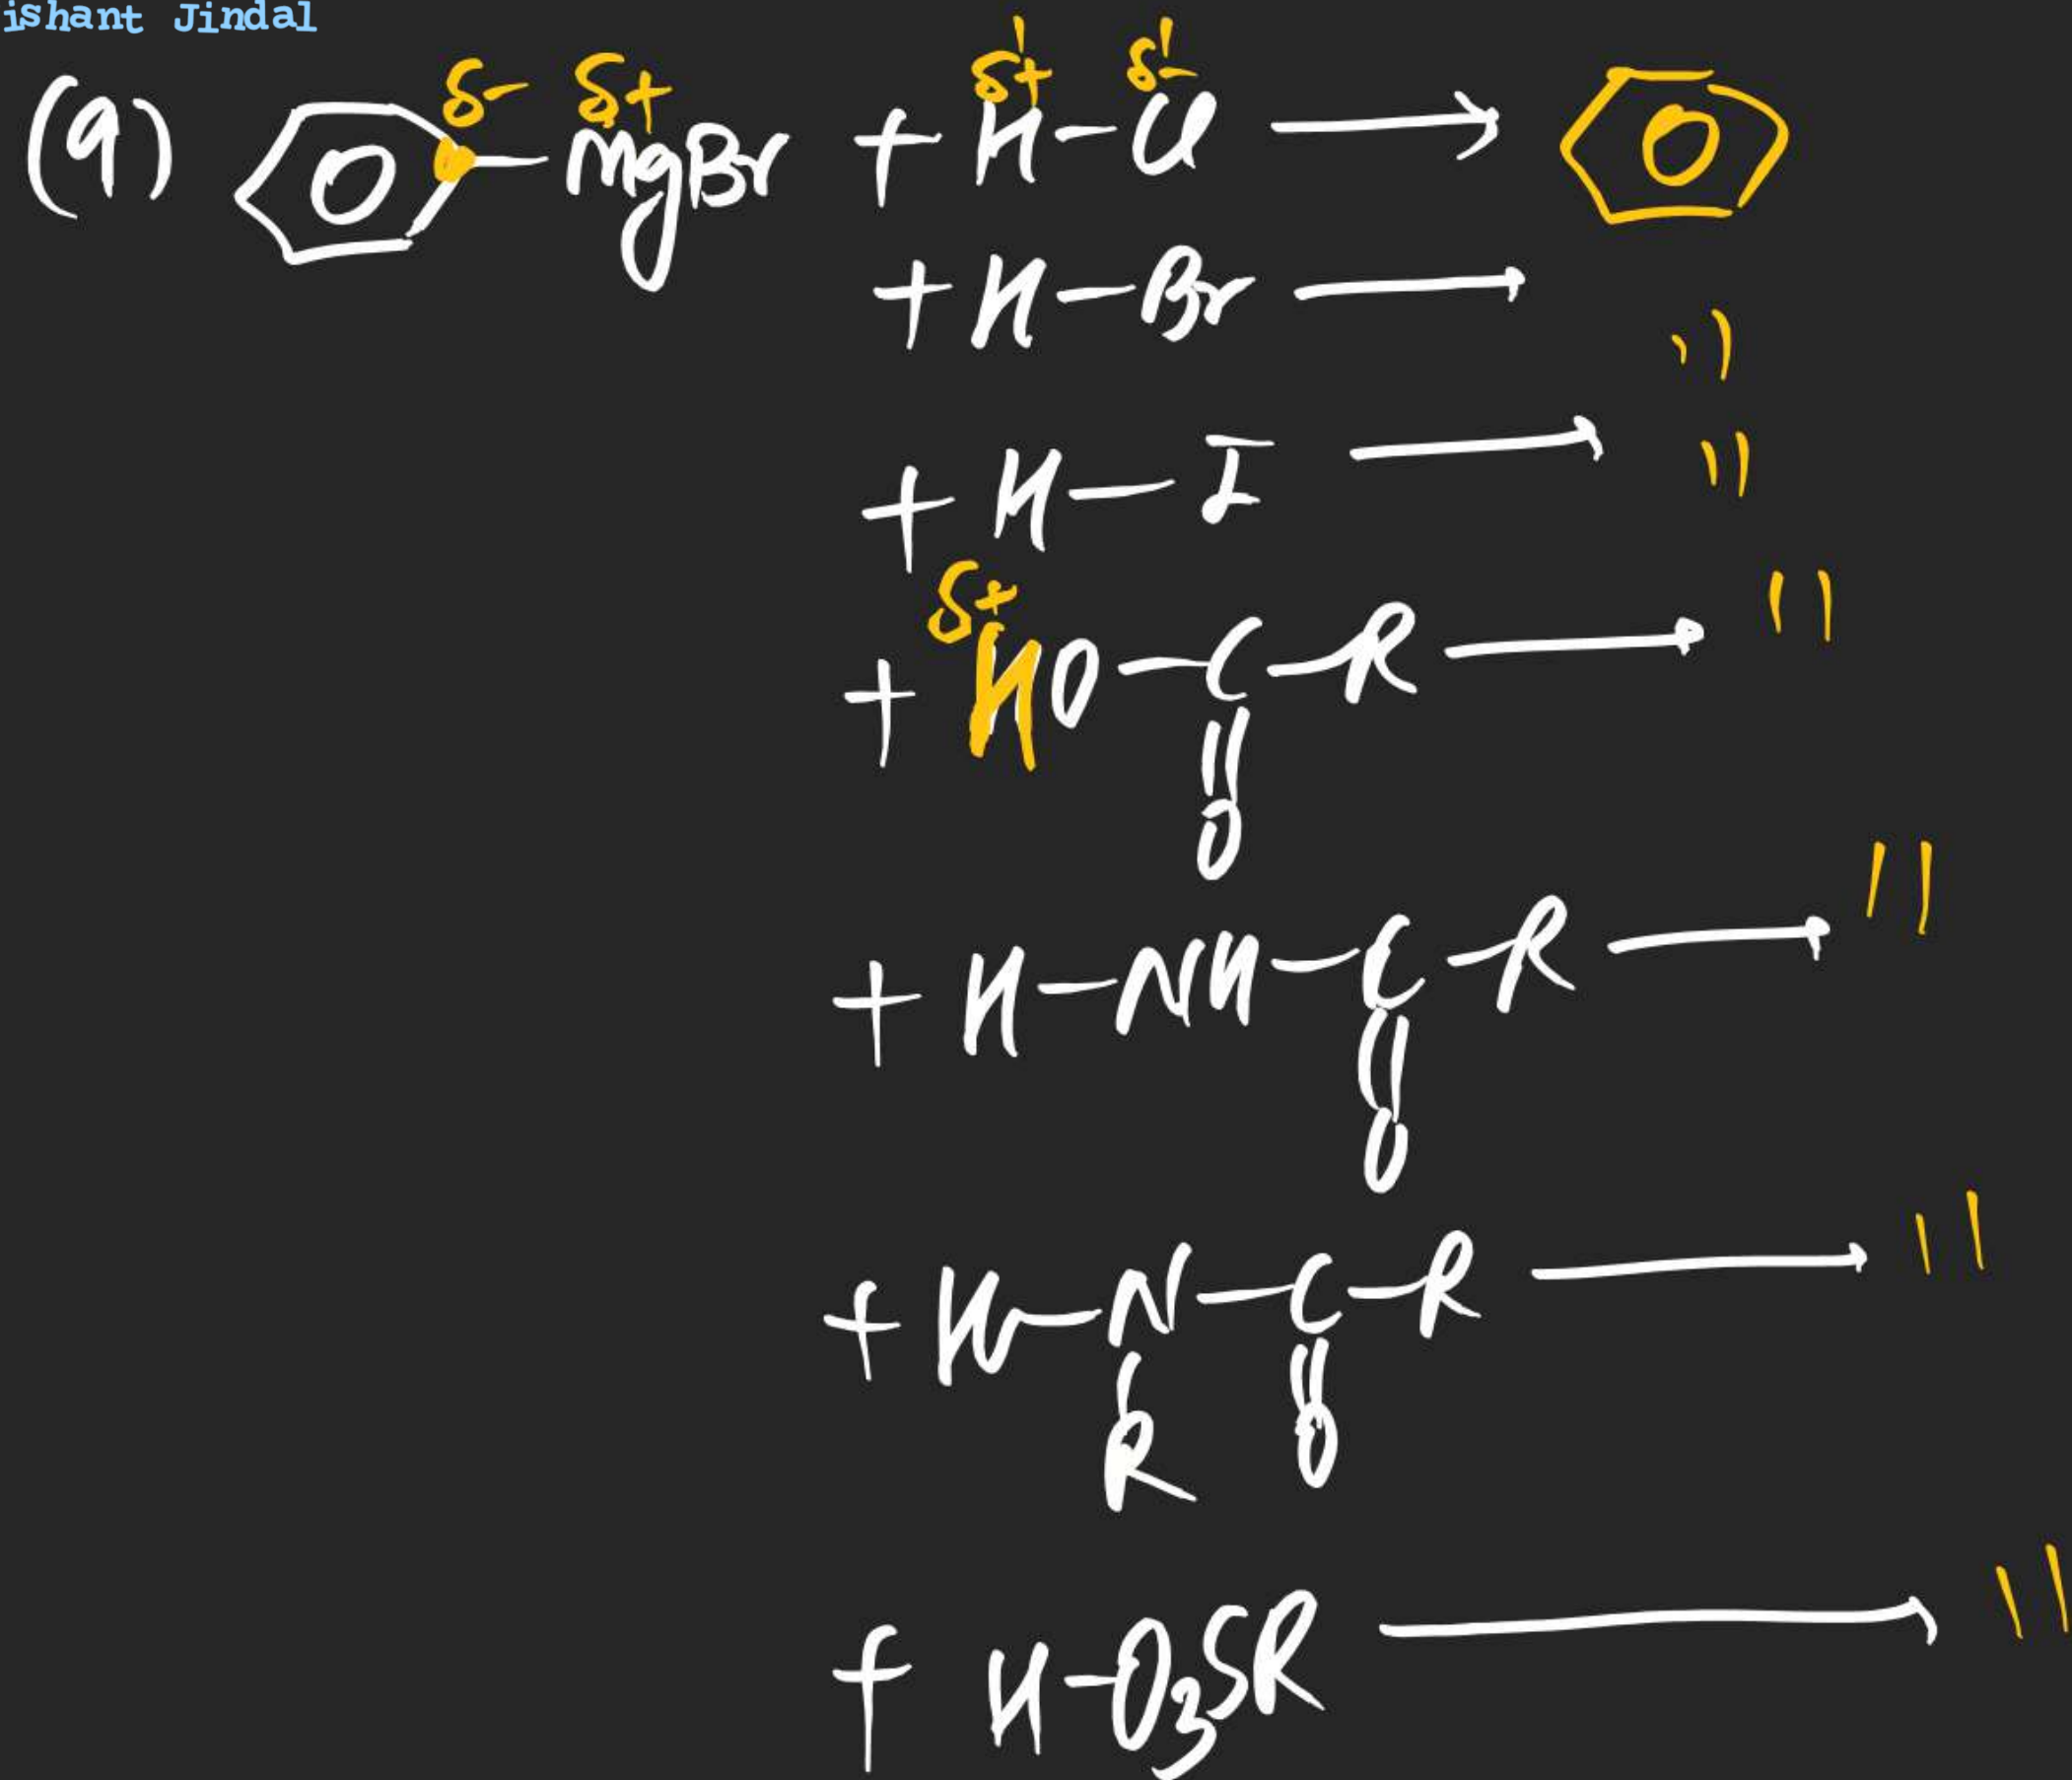 ishant Jindal
(9) δ- δ+ MgBr + δ+ H - δ- Cl →
+ H - Br → "
+ H - I → "
+ δ+ HO - C - R → "
O
+ H - NH - C - R → "
O
+ H - N - C - R → "
R O
+ H - O3SR → "